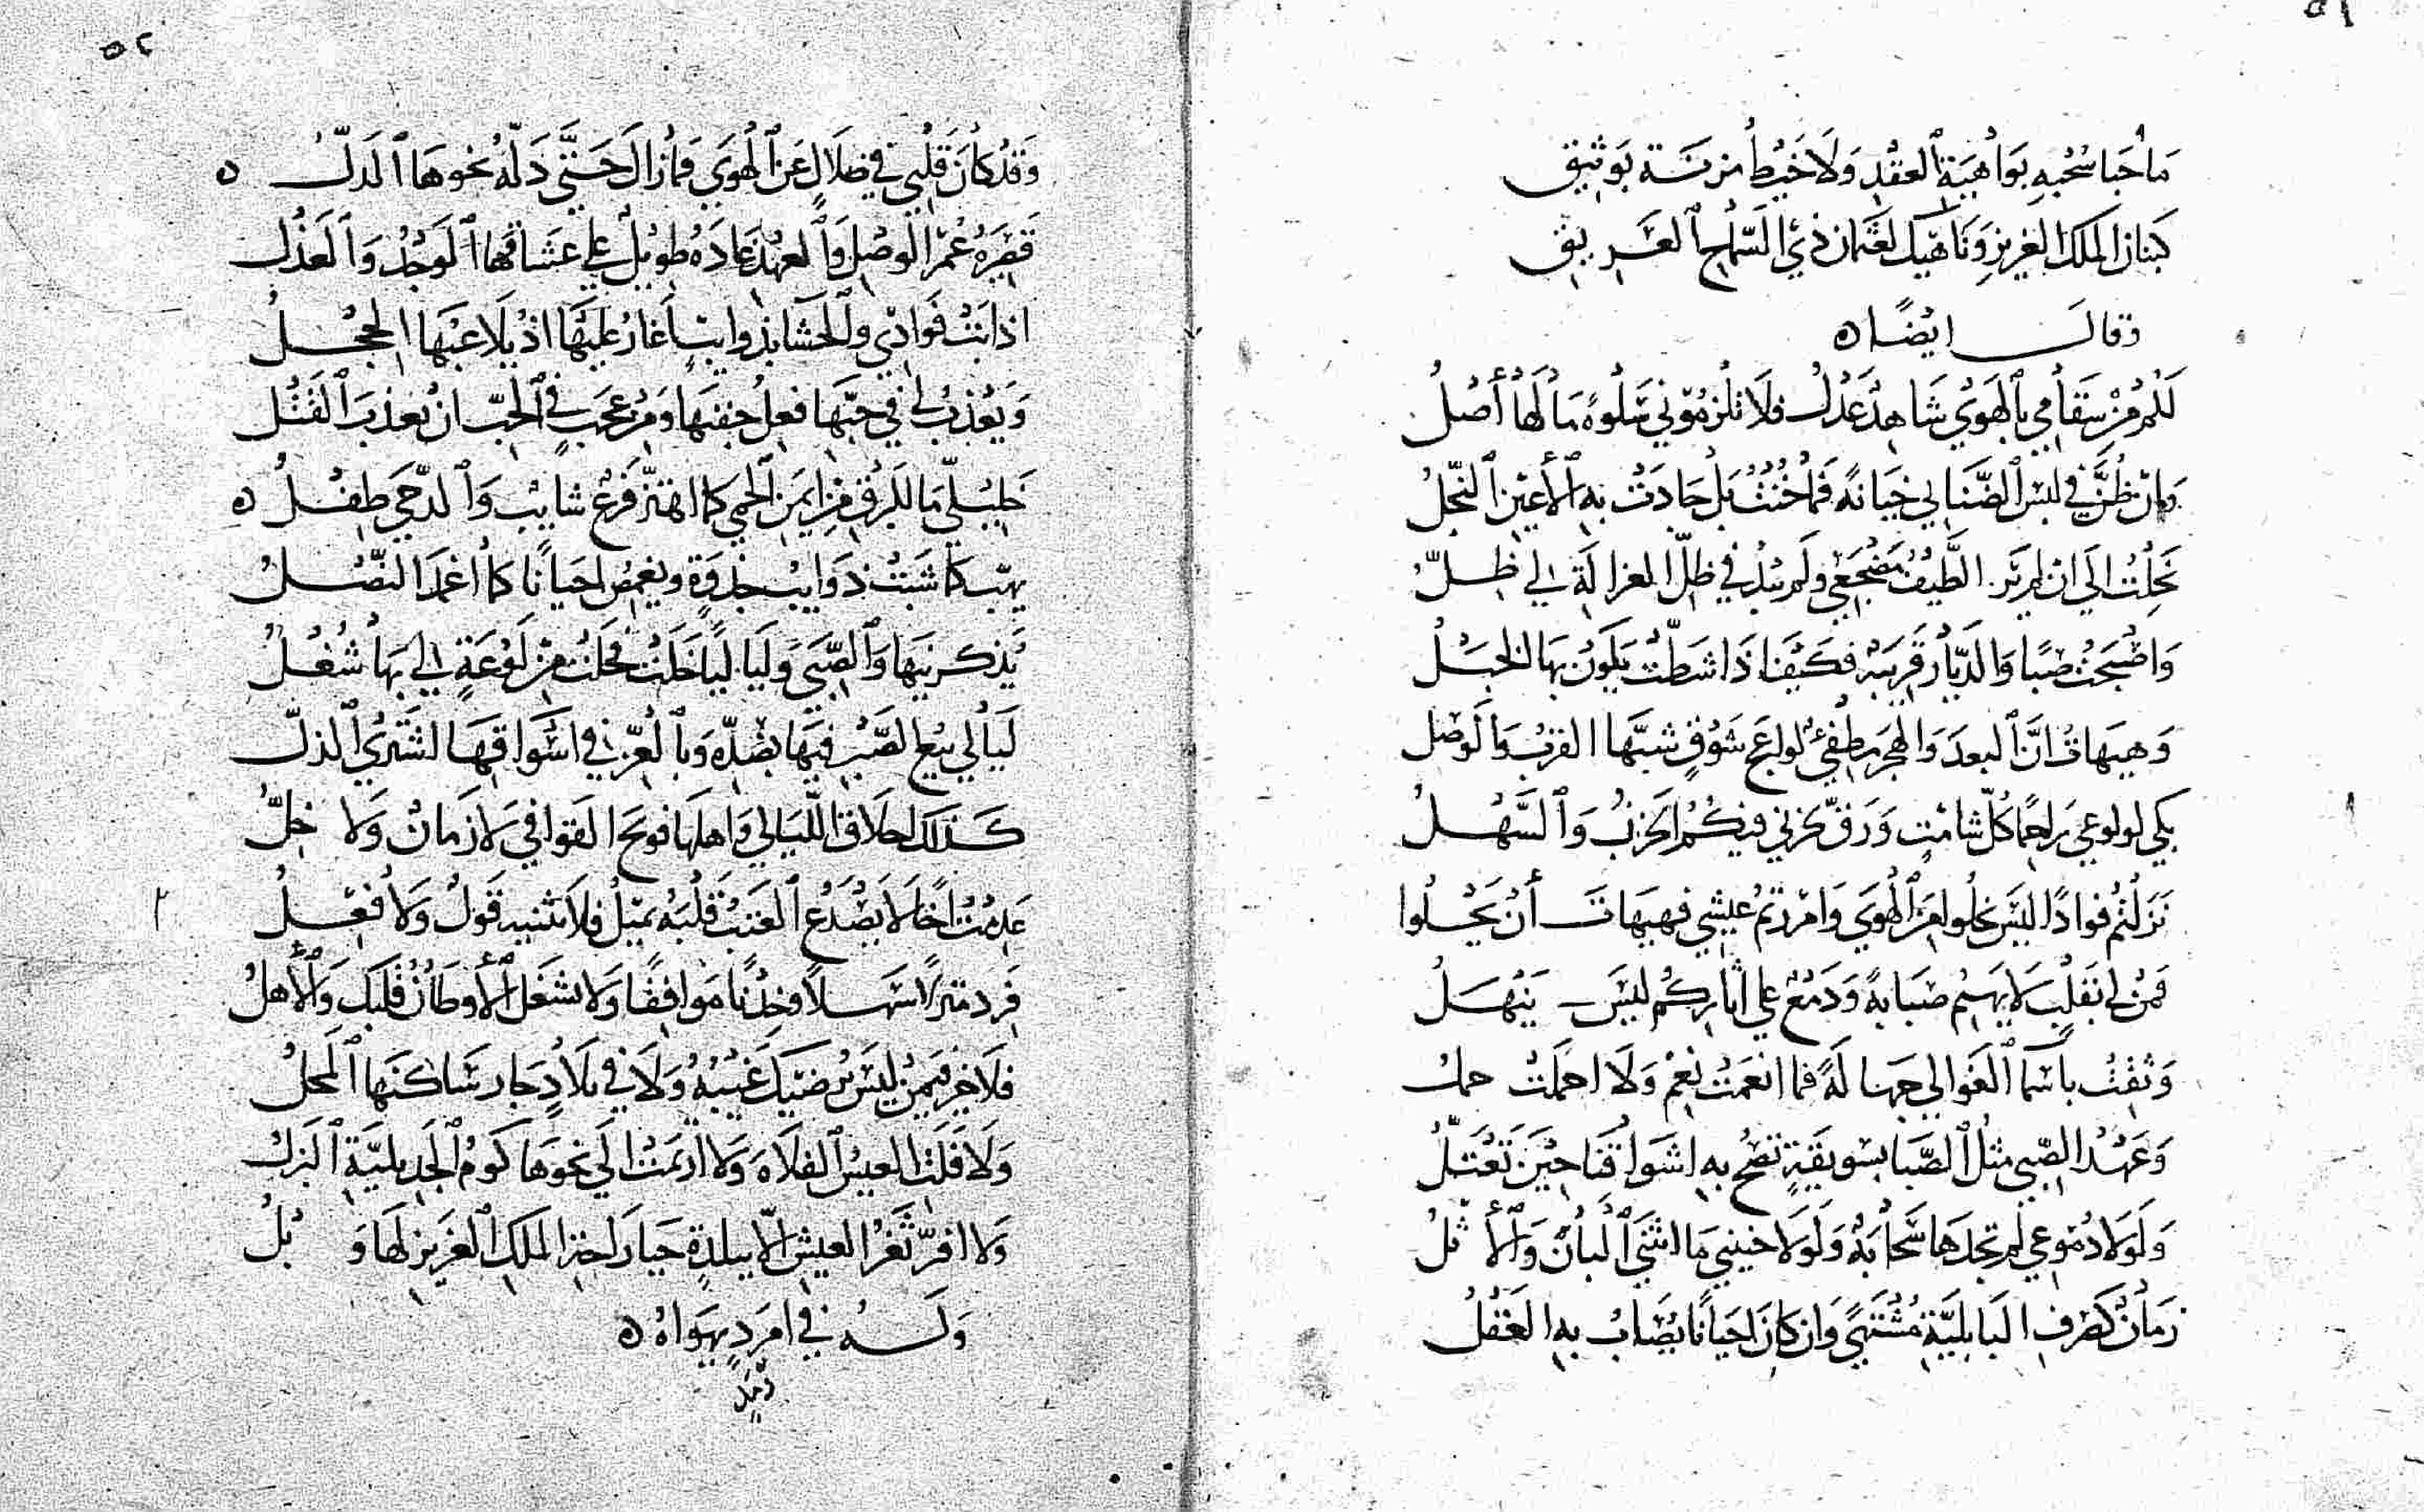 ٥١
مَا حَبَا سُحْبِهِ بِوَاهِيَةِ ٱلعقْدِ وَلَا خَيْطُ مُزنَة بوَثيق
كبنان الملك العَزيزِ وَنَاهيك لعثمان ذي السّماح الغَريق
وقالَ ايضًا ه
لَكُمْ مِنْ سَقَامي بٱلهَوَى شَاهدٌ عَدْلُ فَلَا تُلْزِمُوني سَلْوةً مَا لَهَا أَصْلُ
وَانْ ظُنَّ في لبْسِ ٱلضَّنَا بي خيَانةً فَمَا خُنْتُ بَلْ جَادَتْ بهِ ٱلأعْيُن ٱلنّجْلُ
نَحِلْتُ الَى انْ لم يَزر الطَّيفُ مَضْجَعي ولم يَبْدُ في ظلّ الغزالَةِ لي ظلُّ
وَاصْبَحْتُ صَبًّا وَالديَارُ قَريبَةٌ فكَيْفَ اذَا شَطَّتْ يَكُونُ بهَا الخَبْلُ
وَهيهَاتَ انَّ ٱلبعدَ وَالهجْرَ مطفئٌ لواعج شَوْقٍ شبَّهَا القربُ وَالوَصْل
بَكى لولوعي رَاحمًا كلّ شامتٍ وَرَقَّ لحزني فيكُمُ الحَزْنُ وَٱلسَّهْلُ
نَزَلْتُمْ فوادًا ليْسَ يخلُو منَ ٱلهَوَى وَامْررتمُ عيشي فهيهَاتَ أنْ يَحْلُوا
فَمَنْ لي بقَلْبٍ لَا يَهيمُ صَبَابةً وَدَمْعٍ على اثاركُم ليْسَ يَنْهَلُ
وَثقْتُ باسْمَا ٱلغَوَالي جَهالَةً فما انعَمَتْ نُعْمٌ وَلَا اجمَلَتْ جملُ
وَعَهْدُ الصّبى مثْلُ ٱلصَّبَا بسويقَةٍ تصحّ بهِ اشوَاقُنَا حيْنَ تَعْتَلُّ
وَلَولَا دُمُوعي لم تجدهَا سَحَابَةٌ وَلَولَا حنيني مَا انثنَى ٱلبانُ وَٱلأثْلُ
زمَانٌ كطرفِ البَابليَّةِ مُشْتَهًى وَان كانَ احيَانًا يصَابُ بهِ العَقْلُ
٥٢
وَقدْ كانَ قَلْبي في ضلَالٍ عَن ٱلهَوَى فمازَالَ حَتَّى دَلّهُ نحوهَا ٱلدَلُّ ه
قصيرَةُ عُمْر الوَصْلِ وَٱلعهْدِ عَادَهُ طويْلٌ على عشاقهَا ٱلوَجْدُ وَٱلعَذْلُ
اذابَتْ فوادي وٱلحَشَا بذوايبٍ اغَارُ عليْهَا اذْ يلَاعبُهَا الحِجْلُ
وَيعْذبُ لي في حبّهَا فعلُ جفنهَا وَمنْ عجَبٍ في ٱلحبّ انْ يعْذبَ ٱلقَتْلُ
خَليليّ مَا للبرقِ منْ ايمَن ٱلحمى كما اهتزّ فَرْعٌ شايبٌ وَٱلدّجى طفْلُ ه
يهبّ كمَا شبّتْ ذوَايبُ جذوَةٍ ويغمضُ احيَانًا كما اغمدَ النّصْلُ
يُذكرنيهَا وَٱلصّبَى وَلَيَاليًا خَلَتْ فخلَتْ منْ لَوْعَةٍ لي بهَا شُغْلُ
ليَالي بيع الصّبر فيهَا بضدّهِ وَبٱلعزّ في اسْوَاقهَا اشترى ٱلذلّ
كذلك اخلَاق اللّيَالي وَاهلهَا فويْحَ القوافي لَا زَمانٌ وَلَا خِلُّ
عَدمْتُ اخًا لَا يصْدَعُ ٱلعَتبُ قَلْبَهُ يميْلُ فلَا يثنيهِ قَولٌ وَلَا فعْلُ
فَرد منزلًا سَهلًا وخِدْنًا موَافقًا وَلَا يشغل ٱلأوطَانُ قَلبَك وَٱلأهْلُ
فَلَا خيرَ فيمَنْ ليْسَ يُرضيْكَ غَيْبُهُ وَلَا في بلَادٍ جَار سَاكنَهَا ٱلمحْلُ
وَلَا فلَت العيسُ ٱلفلَاةَ وَلَا ارتمَتْ الَى نحوهَا كُومُ ٱلجَديليَّةِ ٱلبزلُ
وَلَا افترّ ثَغْرُ العيشِ الّا ببلدةٍ حيَا رَاحتي الملك ٱلعَزيزِ لهَا وَبْلُ
وَلَهُ في امرَدٍ يهوَاهُ ه